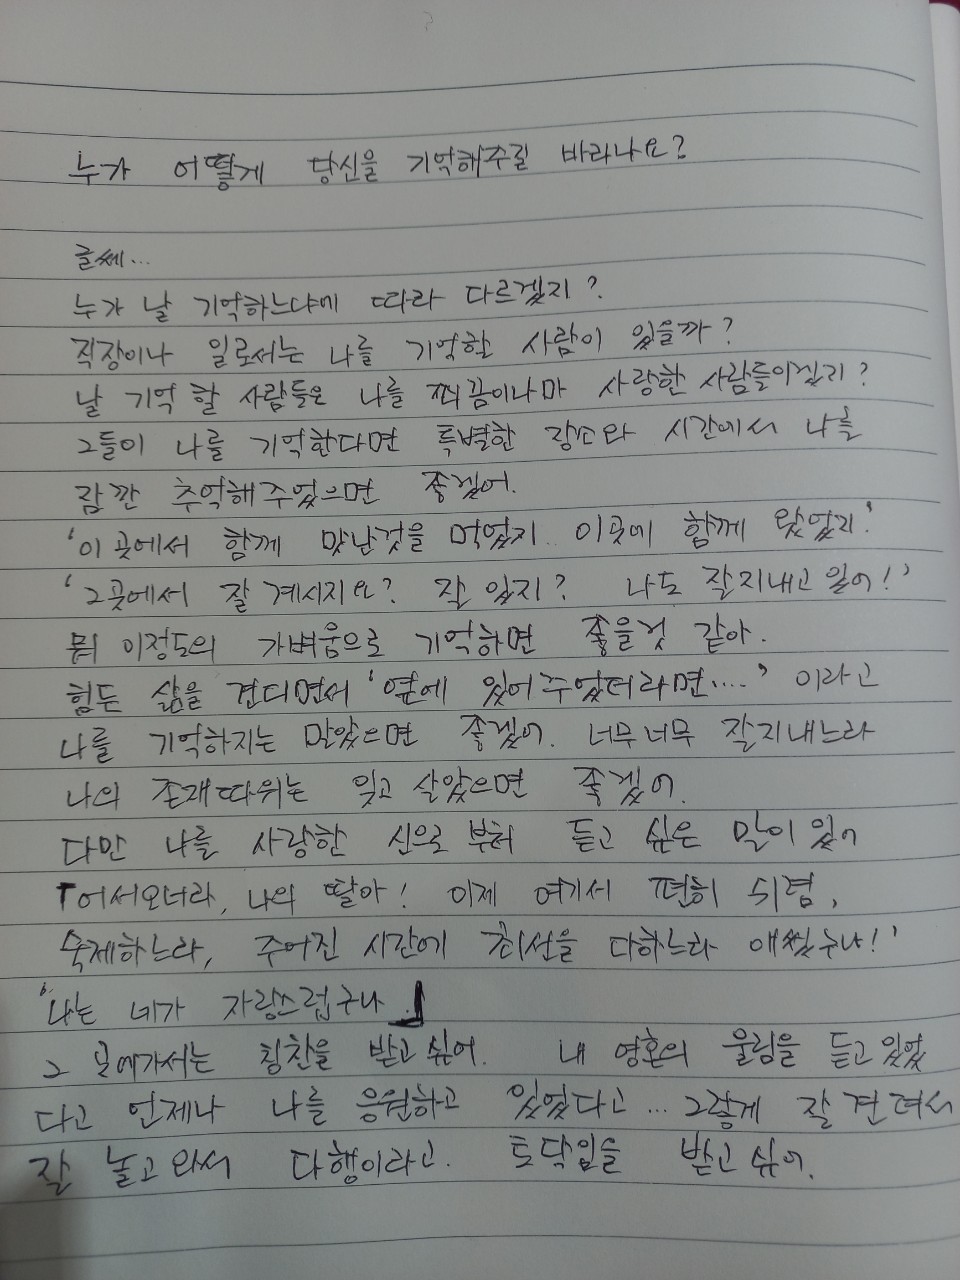 누가 어떻게 당신을 기억해주길 바라나요?
글쎄...
누가 날 기억하느냐에 따라 다르겠지?
직장이나 일로서는 나를 기억할 사람이 있을까?
날 기억 할 사람들은 나를 쬐끔이나마 사랑한 사람들이겠지?
그들이 나를 기억한다면 특별한 장소와 시간에서 나를
잠깐 추억해주었으면 좋겠어.
'이 곳에서 함께 맛난것을 먹었지.. 이곳에 함께 왔었지'
'그곳에서 잘 계시지요? 잘 있지? 나도 잘지내고 있어!'
뭐 이정도의 가벼움으로 기억하면 좋을것 같아.
힘든 삶을 견디면서 '옆에 있어주었더라면....' 이라고
나를 기억하지는 말았으면 좋겠어. 너무너무 잘지내느라
나의 존재따위는 잊고 살았으면 좋겠어.
다만 나를 사랑한 신으로부터 듣고 싶은 말이 있어
「어서오너라, 나의 딸아! 이제 여기서 편히 쉬렴,
숙제하느라, 주어진 시간에 최선을 다하느라 애썼구나!'
'나는 네가 자랑스럽구나.」
그 곳에가서는 칭찬을 받고싶어. 내 영혼의 울림을 듣고있었
다고 언제나 나를 응원하고 있었다고... 그렇게 잘 견뎌서
잘 놀고와서 다행이라고. 토닥임을 받고싶어.